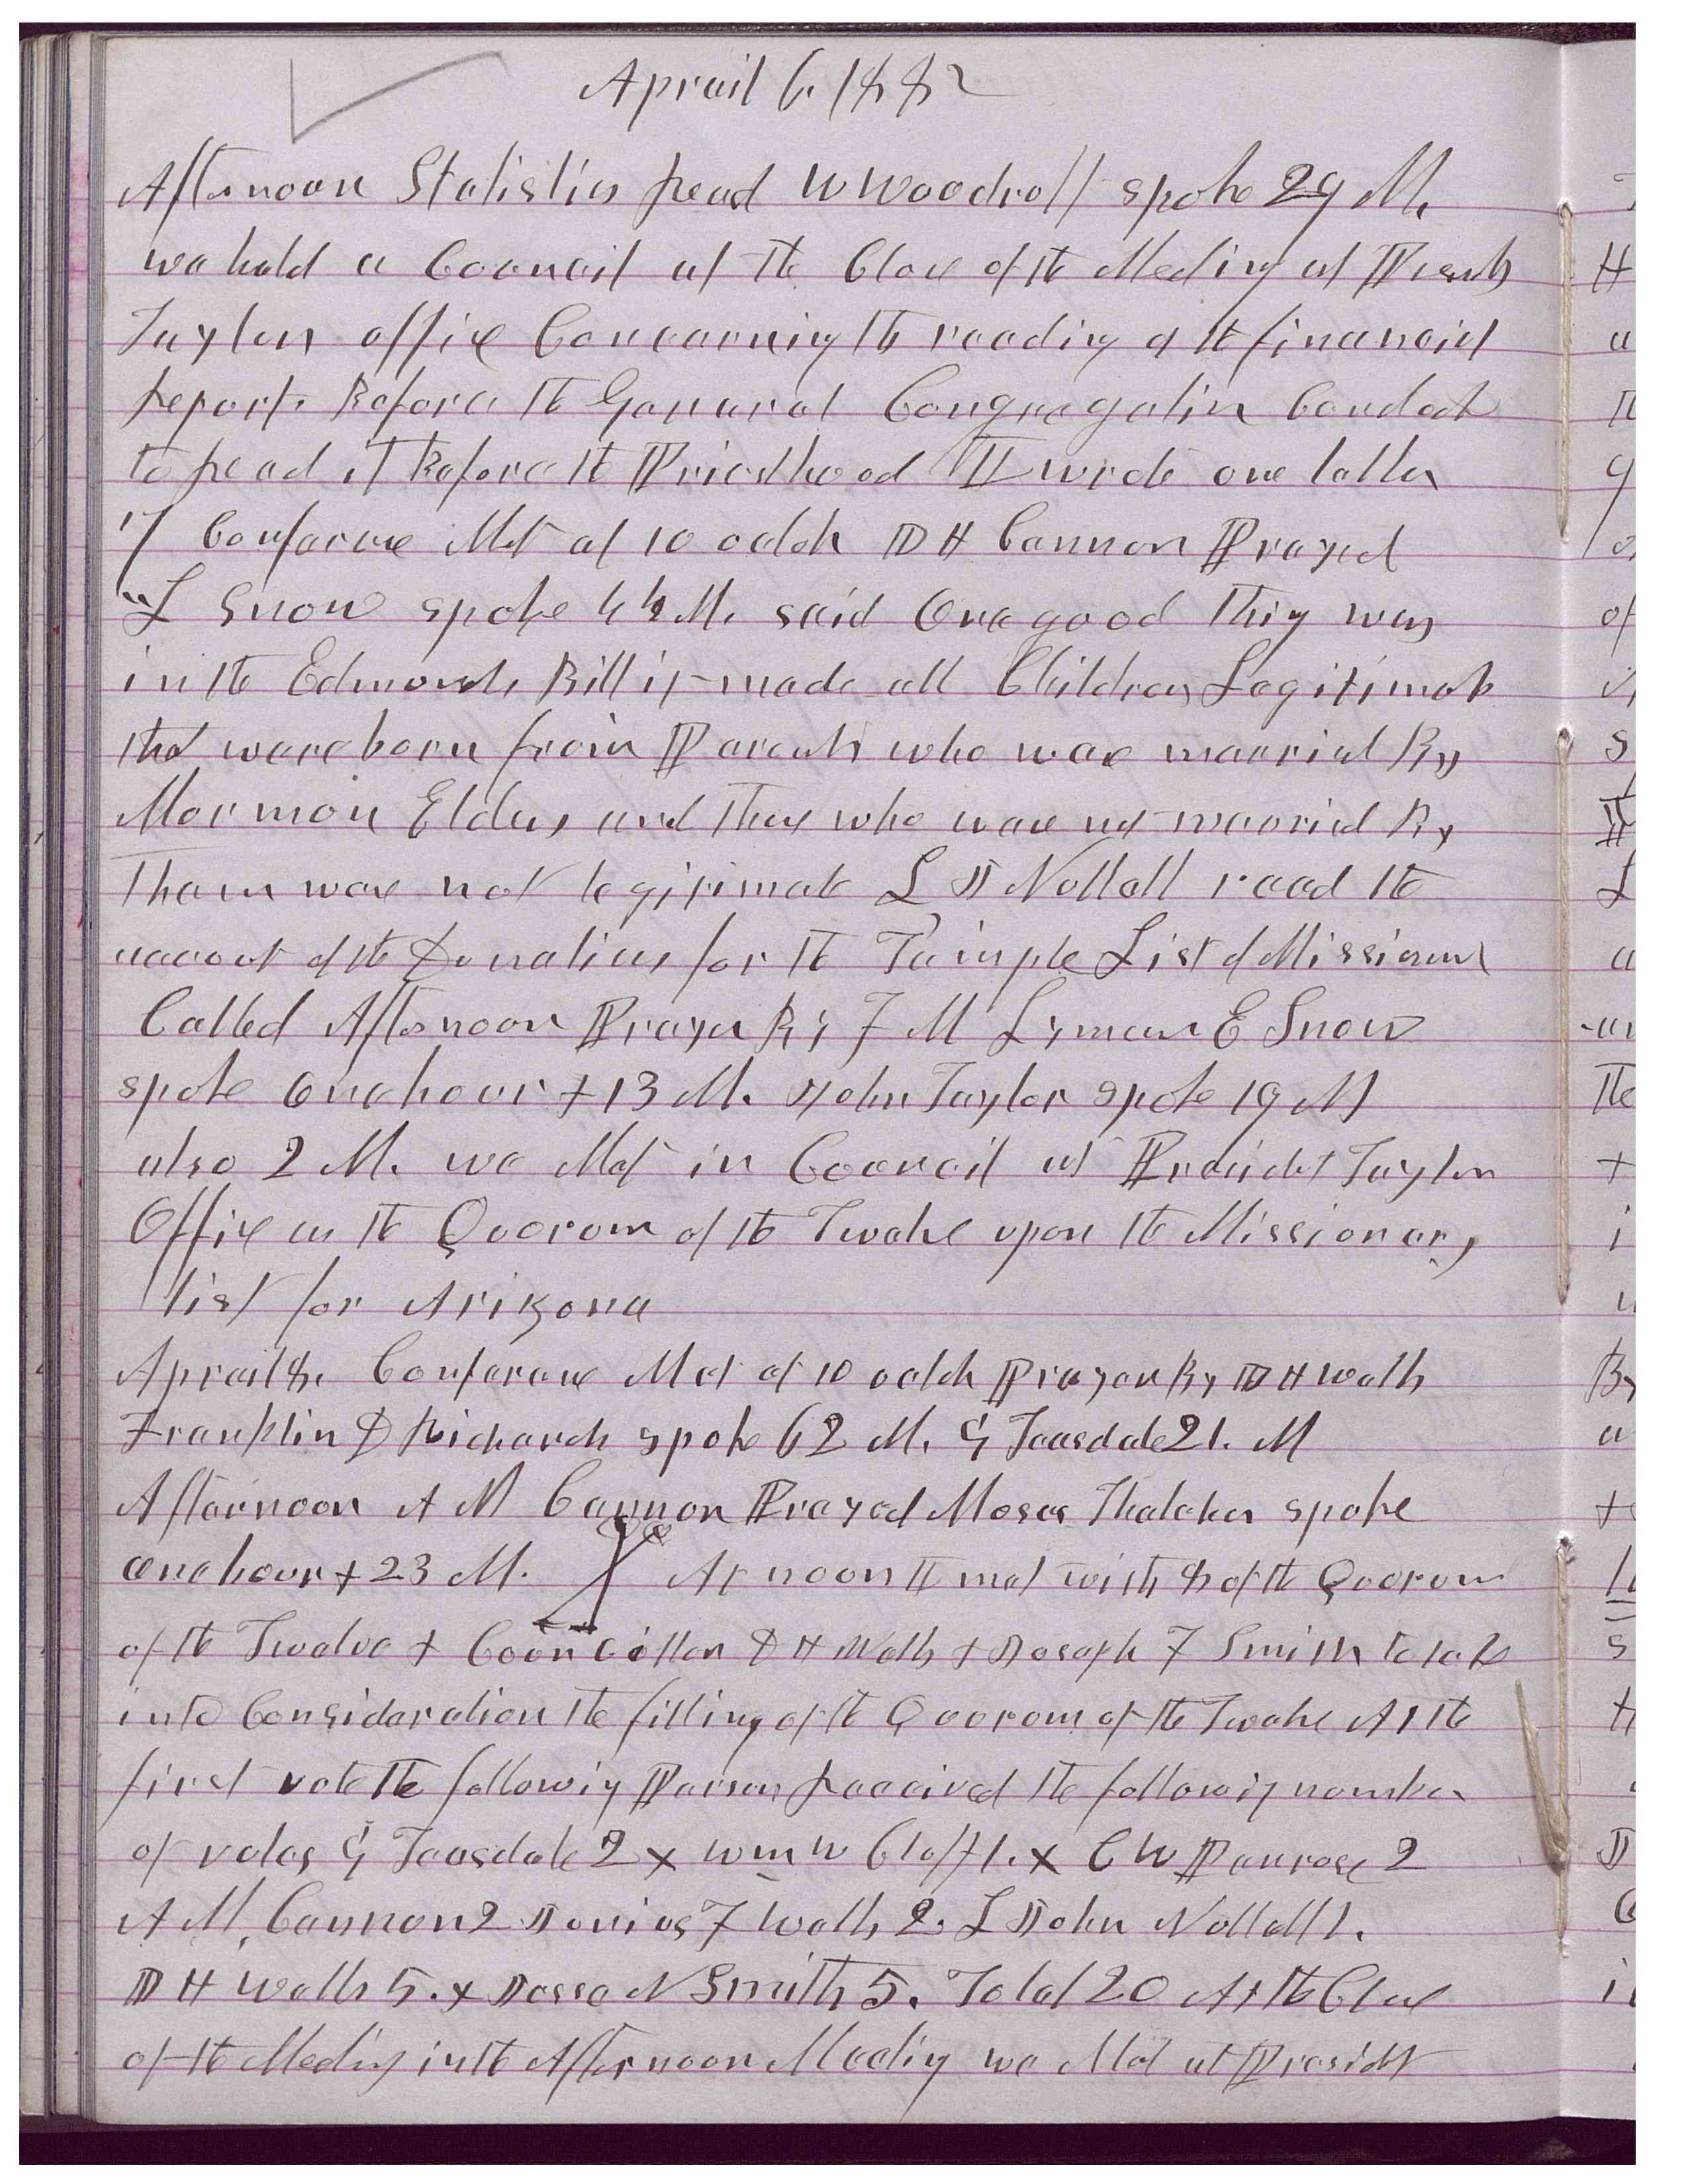 Aprail 6. 1882
Afternoon Statistics read W Woodruff spoke 29 M.
we held a Council at the Close of the Meeting at Presidt
Taylors office Concerning the reading of the financial
report Before the General Congregation Concluded
to read it Before the Priesthood I wrote one letter
17 Conference Met at 10 oclok D H Cannon Prayed
L Snow spoke 44 M. said One good thing was
in the Edmonds Bill it made all Children Legitimate
that were born from Parents who wae married By
Mormon Elders and those who wae not married By
Them wae not legitimate L J Nuttall read the
account of the Donations for the Temple List of Missionaries
Called Afternoon Prayer By F M Lyman E Snow
spoke One hour + 13 M. John Taylor spoke 19 M
also 2 M. we Met in Council at Presidet Taylor
Office as the Quorum of the Twelve upon the Missionary
list for Arizona
Aprail 8. Conferene Met at 10 oclok Prayer By D H Wells
Franklin D Richards spoke 62 M. G Teasdale 21. M
Afternoon A M Cannon Prayed Moses Thatcher spoke
one hour + 23 M. At noon I met with 8 of the Quorum
of the Twelve + Councillor D H Wells + Joseph F Smith to take
into Consideration the filling of the Quorum of the Twelve At the
first vote the followig Persons received the followig number
of votes G Teasdale 2 x Wm W Cluff 1. x C W Penrose 2
A M. Cannon 2 Junius F Wells 2. L John Nuttall 1.
D H Wells 5. x Jesse N Smith 5. Total 20 At the Close
of the Meeting in the Afternoon Meetig we Met at Presidt